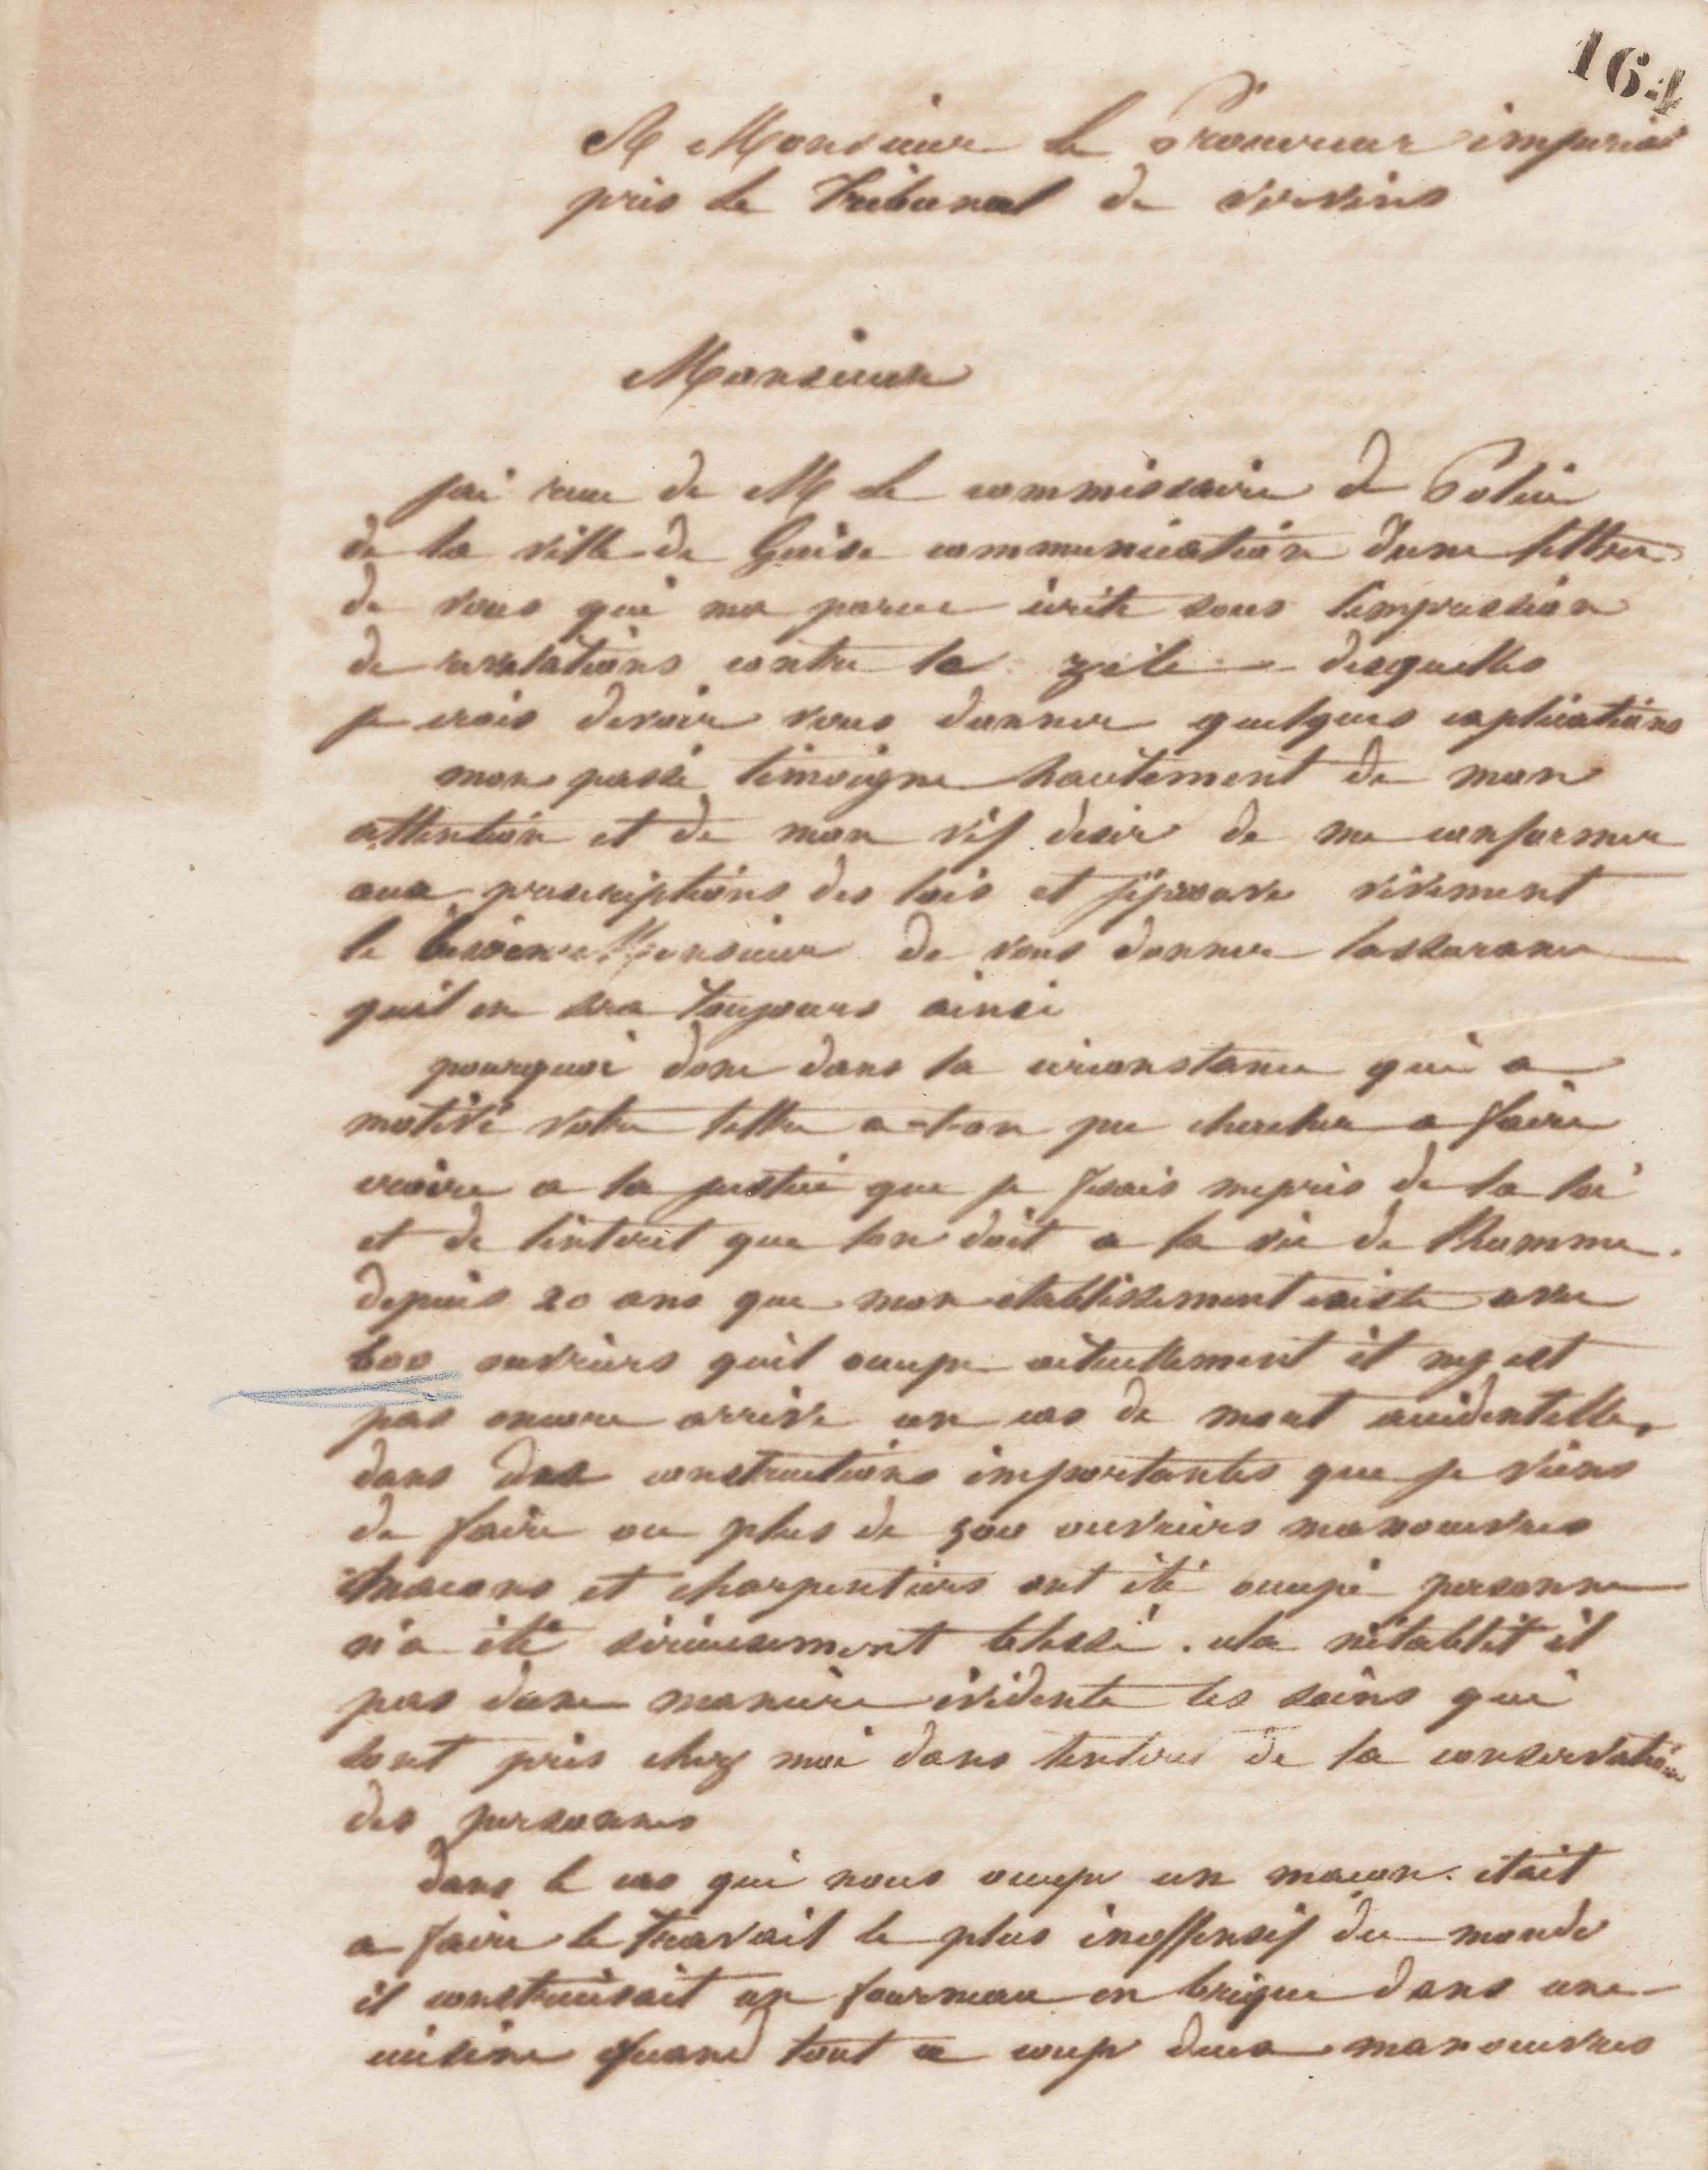 164
A Monsieur le Procureur imperial
près le Tribunal de Vervins
Monsieur
jai recu de M le commissaire de Police
de la ville de Guise communication dune lettre
de vous qui ma parue écrite sous limpression
de revelations contre le zèle desquelles
je crois devoir vous donner quelques explications
mon passé témoigne hautement de mon
attention et de mon vif desir de me conformer
aux prescriptions des lois et jéprouve vivement
le besoin Monsieur de vous donner lassurance
quil en sera toujours ainsi
pourquoi donc dans la circonstance qui a
motivé votre lettre a-t-on pu chercher a faire
croire a la justice que je fesais mepris de la loi
et de lintéret que lon doit a la vie de lhomme.
depuis 20 ans que mon etablissement existe avec
600 ouvriers quil occupe actuellement il ny est
pas encore arrivé un cas de mort accidentelle,
dans des constructions importantes que je viens
de faire ou plus de 500 ouvriers manouvres
macons et charpentiers ont été occupé personne
n'a été sérieusement blessé. cela nétablit il
pas dune manière évidente les soins qui
sont pris chez moi dans linteret de la conservation
des personnes
dans le cas qui nous occupe un macon etait
a faire le travail le plus inoffensif du monde
il construisait un fourneau en brique dans une
cuisine quand tout a coup deux manouvres